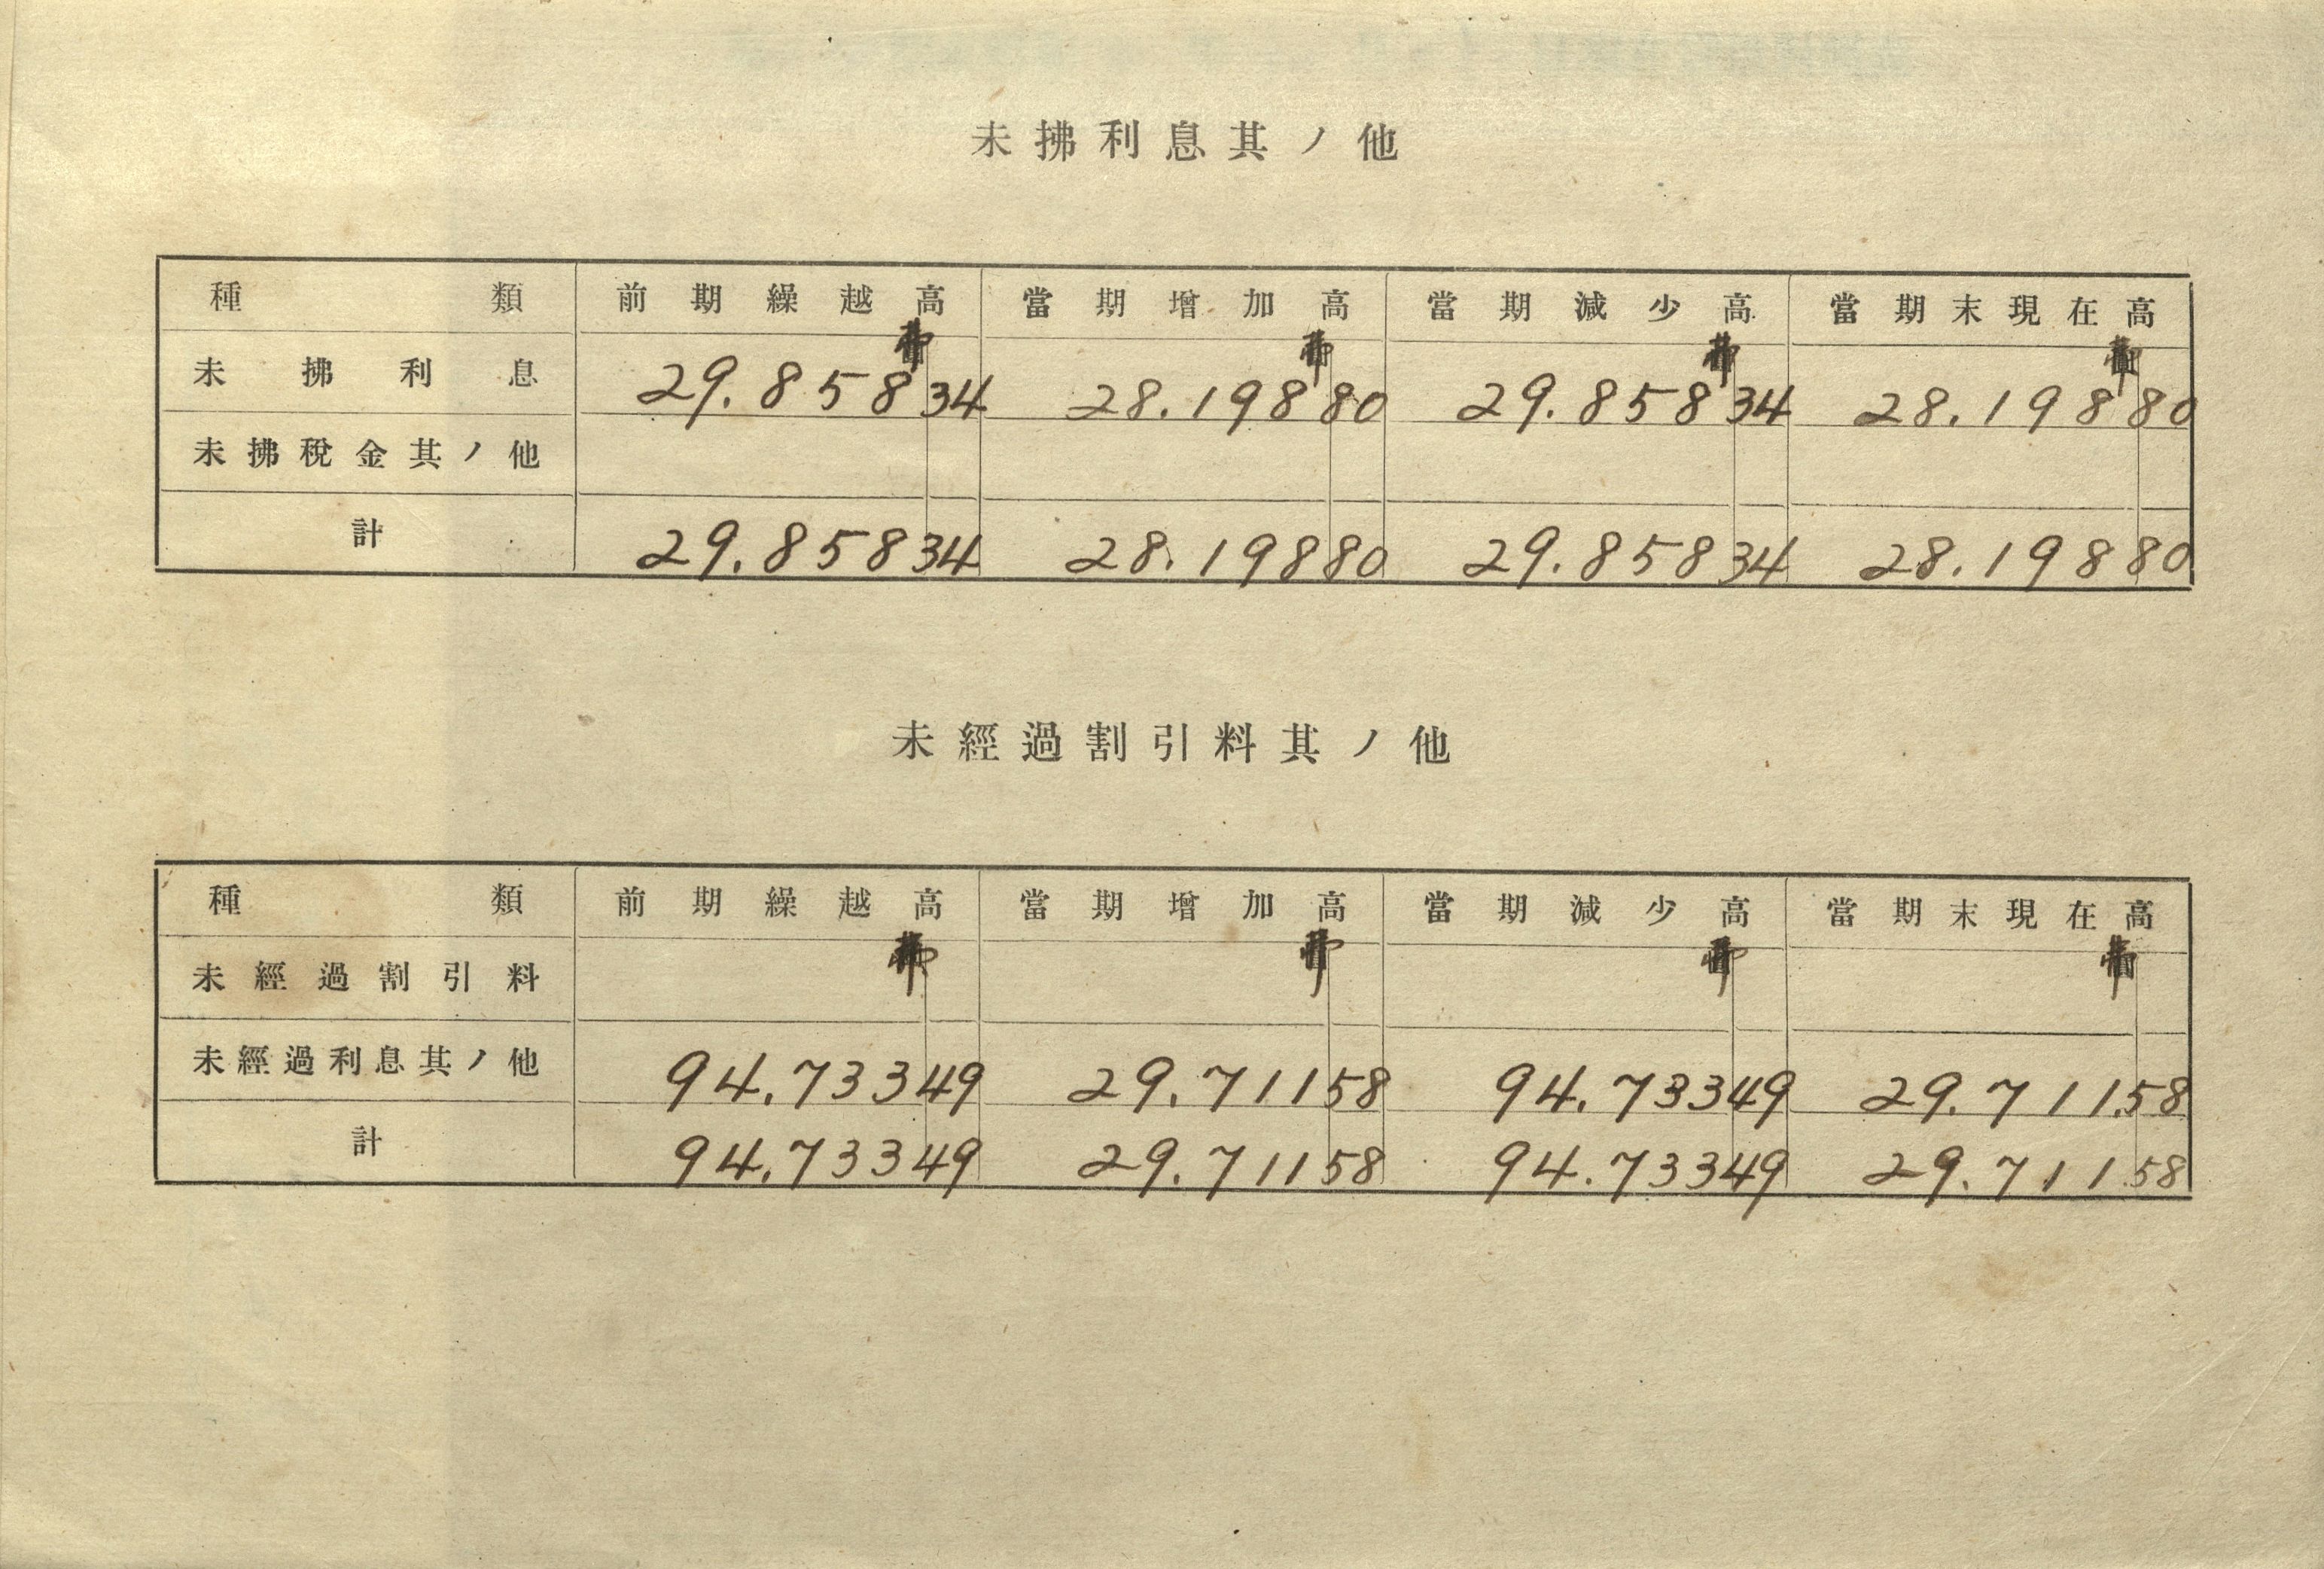 未拂利息其ノ他
種類 前期繰越高 當期增加高 當期減少高 當期末現在高
未拂利息 29.858 34 28.198 80 29.858 34 28.198 80
未拂稅金其ノ他
計 29.858 34 28.198 80 29.858 34 28.198 80
未經過割引料其ノ他
種類 前期繰越高 當期增加高 當期減少高 當期末現在高
未經過割引料
未經過利息其ノ他 94.733 49 29.711 58 94.733 49 29.711.58
計 94.733 49 29.711 58 94.733 49 29.711 58